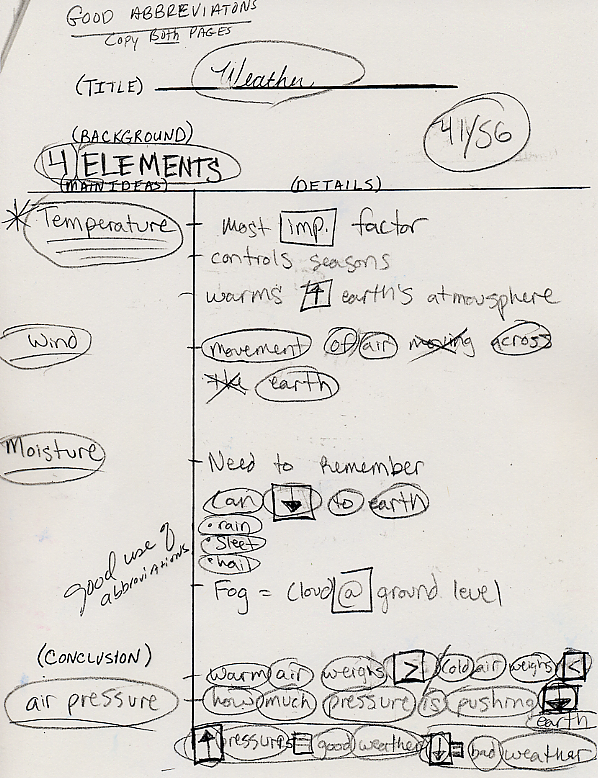 GOOD ABBREVIATONS
COPY BOTH PAGES
(TITLE) Weather
(BACKGROUND)
41/56
4 ELEMENTS
(MAIN IDEAS) (DETAILS)
* Temperature - Most imp. factor
- controls seasons
- warms ↑ earth's atmousphere
Wind - movement of air moving across
the earth
Moisture - Need to Remember
Can ↓ to earth
• rain
• Sleet
• hail
good use of
abbreviations
- Fog = Cloud @ ground level
(CONCLUSION)
- warm air weighs > Cold air weighs <
air pressure - how much pressure is pushing ↓
earth
↑ pressures = good weather ↓ = bad weather